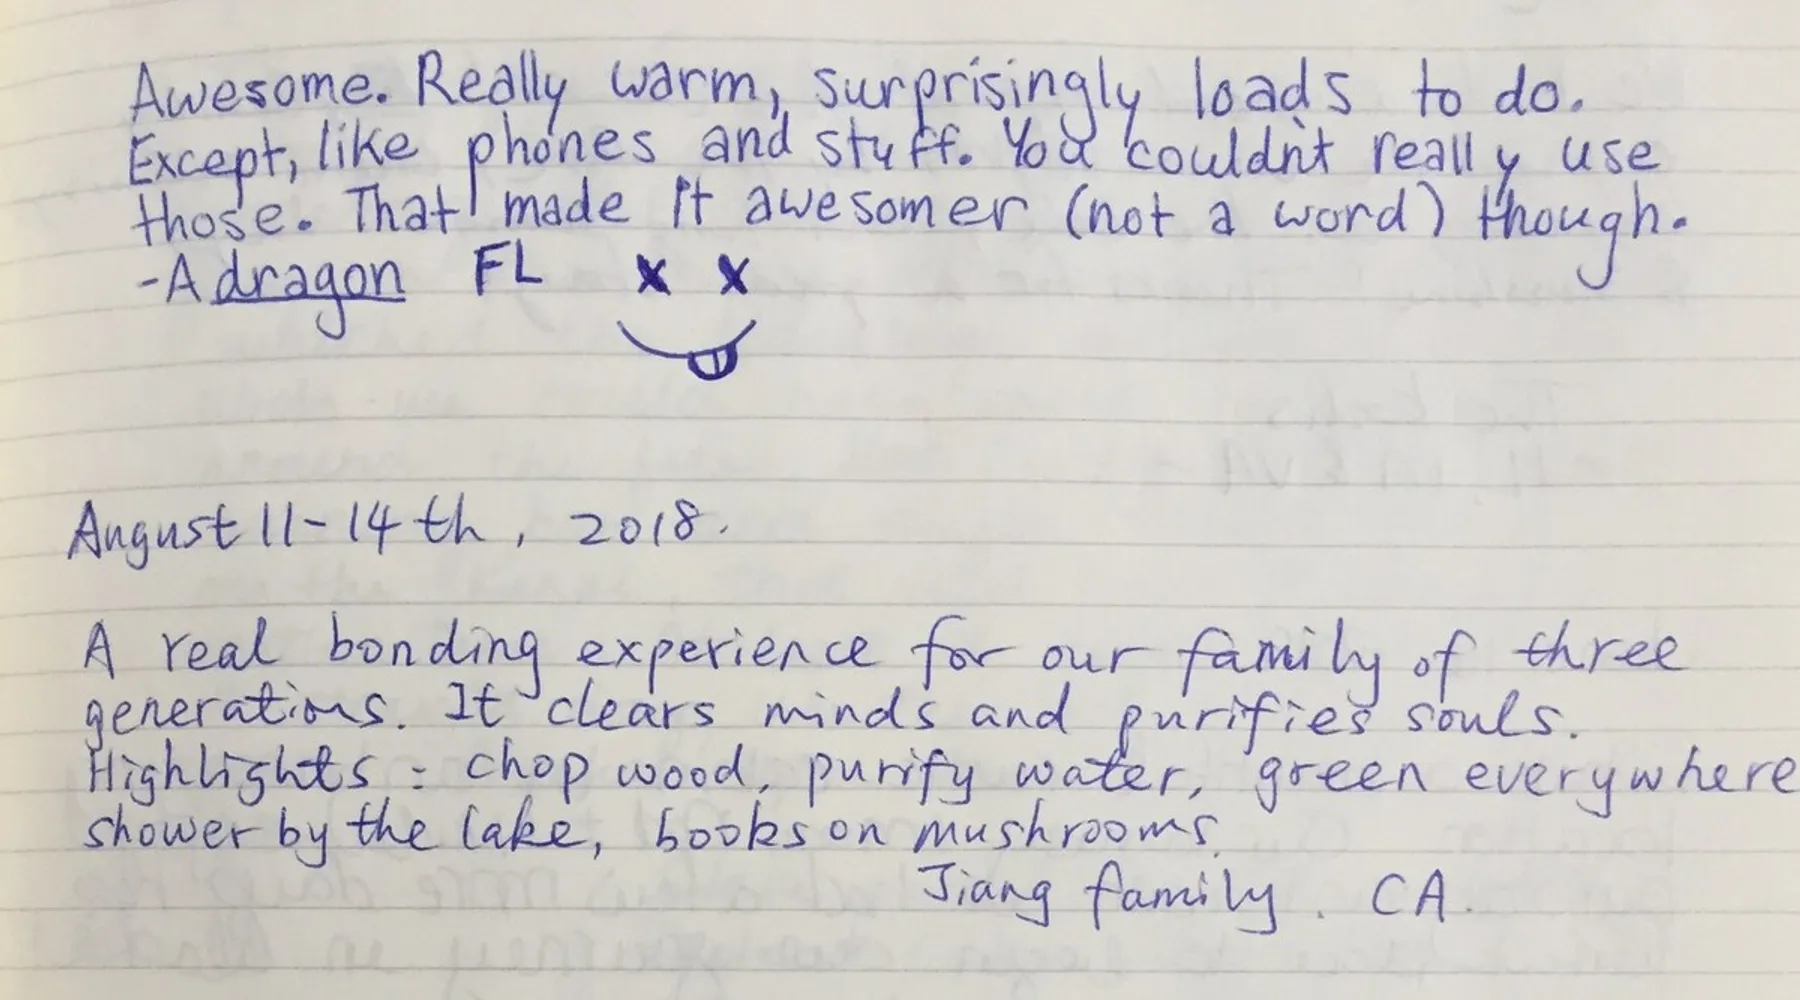 Awesome. Really warm, surprisingly loads to do.
Except, like phones and stuff. You couldn't really use
those. That made it awesomer (not a word) though.
-A dragon FL x x
August 11-14th, 2018.
A real bonding experience for our family of three
generations. It clears minds and purifies souls.
Highlights: chop wood, purify water, green everywhere
shower by the lake, books on mushrooms.
Jiang family. CA.